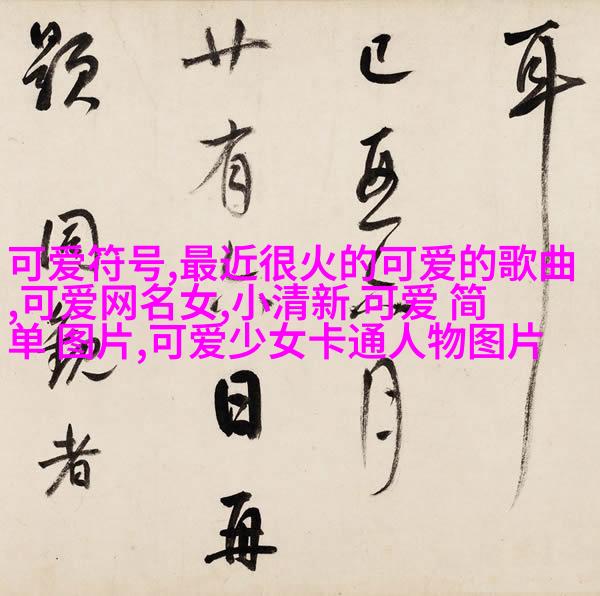 耳
月
廿有日再
題 同觀者
可爱符号,最近很火的可爱的歌曲
,可爱网名女,小清新 可爱 简
单 图片,可爱少女卡通人物图片